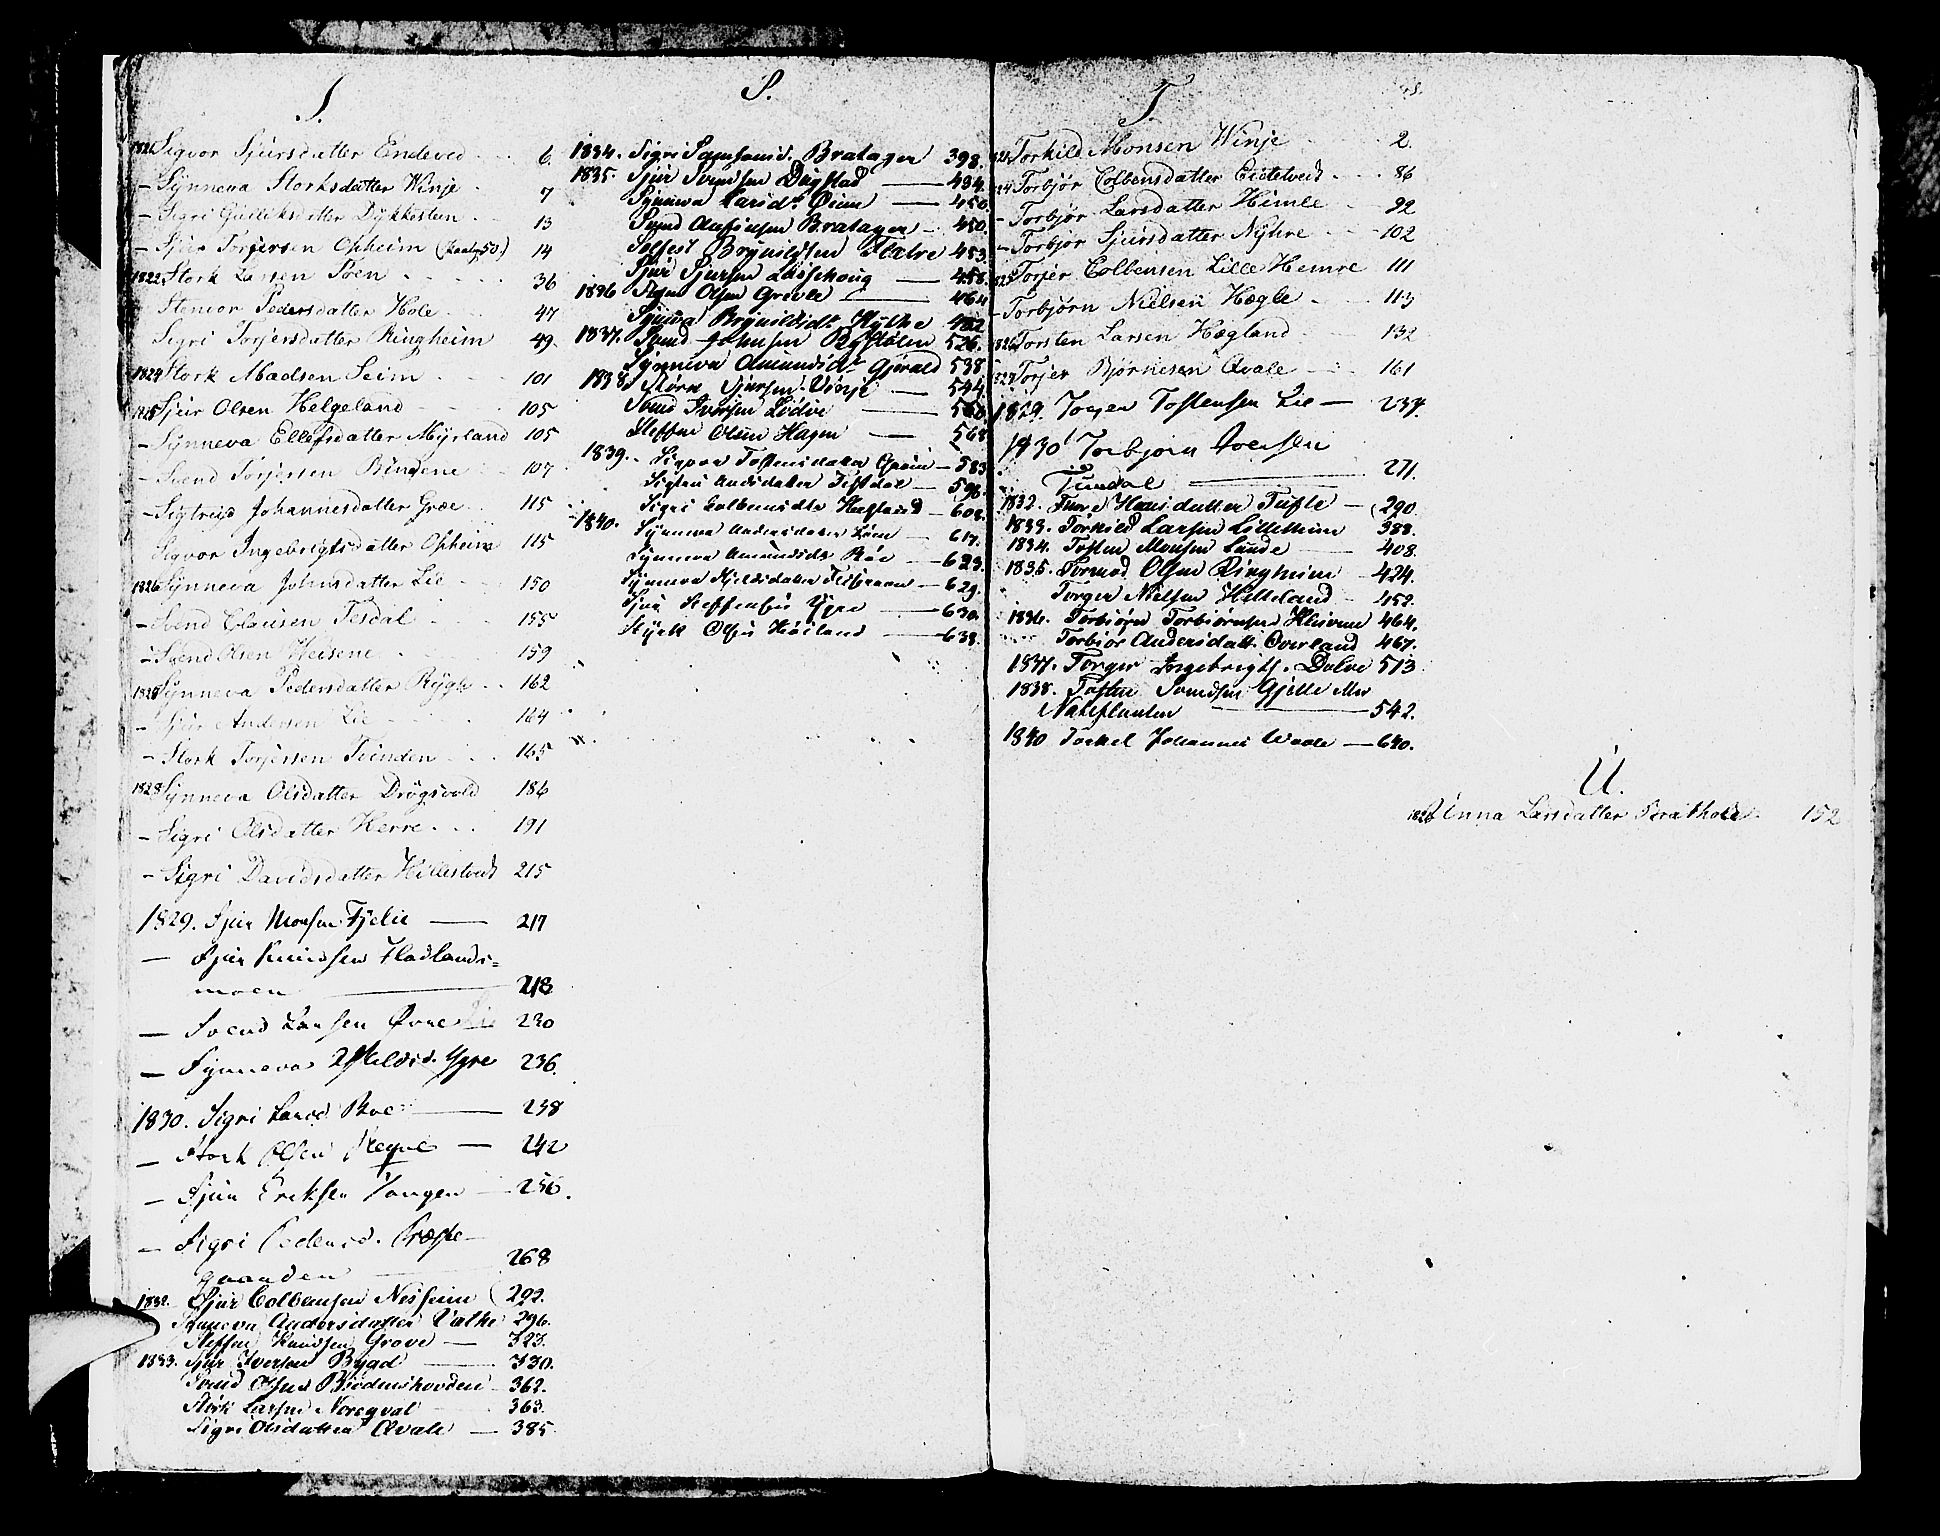 S.
1821 Sigvor Sjursdatter Endeved 6.
- Synneva Storksdatter Winje 7
- Sigri Gulliksdatter Dykkesteen 13
- Sjur Torjersen Opheim 14
1822 Stork Larsen Töen 36
Stenvor Pedersdatter Hole 47
Sigri Torjersdatter Ringheim 49.
1824 Stork Madsen Seim 101
1825 Sjur Olsen Helgeland 105
- Synneva Ellefsdatter Myrland 105
- Svend Torjersen Bindene 107
- Sigtrud Johannesdatter Græe 115
Sigvor Ingebrigtsdatter Opheim 115
1826 Synneva Johnsdatter Lie 150
- Svend Clausen Tesdal 155
- Svend Olsen Weisene 159
Synneva Pedersdatter Rygh 162
- Sjur Andersen Lie 164
- Stork Torjersen Tvinden 165
1828 Synneva Olsdatter Drögsvold 186
- Sigri Olsdatter Herre 191
- Sigri Davidsdatter Hillestvedt 215
1829. Sjur Monsen Fjelie 217
- Sjur Knudsen Fladlands=
moen 218
- Svend Larsen Øvre Lie 230
- Synneva Kjeldsd. Ygre 236.
1830. Sigri Larsd Boe 238
- Stork Olsen Regve 242
- Sjur Eriksen Vangen 256.
- Sigri Pedersd. Præste-
gaarden 268
1832. Sjur Colbensen Nesheim 292.
Synneva Andersdatter Væthe 296.
Steffen Knudsen Grove 323.
1833. Sjur Iversen Bygd 330.
Svend Olsen Biödnishovden 362.
Störk Larsen Noreqval 363.
Sigri Olsdatter Qvale 385
S.
1834. Sigri Samsonsd. Bratager 398.
1835. Sjur Svendsen Dugstad 434.
Synneva Larsdr. Øiim 450
Svend Anfinsen Bratager 450.
Solfest Brynildsen Flatre 453
Sjur Sjursen Lasseskoug 458.
1836 Signe Olsen Grevle 464
Synneva Brynildsdr. Hylhe 482
1837. Svend Johnsen Rystölen 526.
Synneva Amundsdr. Gjerald 538
1838. Störk Sjursen Vinje 544
Svend Iversen Lödve 560
Steffen Olsen Hagen 568
1839. Sigvor Tostensdatter Opeim 583
Sigtru Andsdatter Tistdal 596.
Sigri Colbensdtr Hæfland 608.
1840. Synneva Andersdatter Löne 617.
Synneva Amundsdr Röe 623.
Synneva Kjeldsdatter Fletsraam 629.
Sjur Steffensen Ygre 630.
Styrk Olsen Höiland 638.
T.
1821 Torkild Monsen Winje 2.
1824 Torbjør Colbensdatter Eidetvedt 86
- Torbjør Larsdatter Himle 92
- Torbjør Sjursdatter Nyhre 102
1825 Torjer Colbensen Lille Hemre 111
- Torbjørn Nielsen Hægle 113
1826 Torsten Larsen Hægland 132
1827 Torjer Bjørnesen Qvale 161
1829. Torger Tostensen Lie 237.
1830 Torbjørn Iversen
Tundal 271.
1832. Turre Hansdatter Tufte 290.
1833. Torkied Larsen Lillethun 388.
1834. Tosten Monsen Lunde 408.
1835. Tormod Olsen Ringheim 424.
Torger Nielsen Hilleland 452.
1836. Torbiörn Torbiörnsen Kleivene 464.
Torbiör Andersdatt. Overland 467.
1837. Torger Ingebrigts. Dolve 513
1838. Tosten Svendsen Gjelle Mw
Nateslaaten 542.
1840 Torkel Johannes Waale 640.
U.
1826 Unna Larsdatter Brathole 152